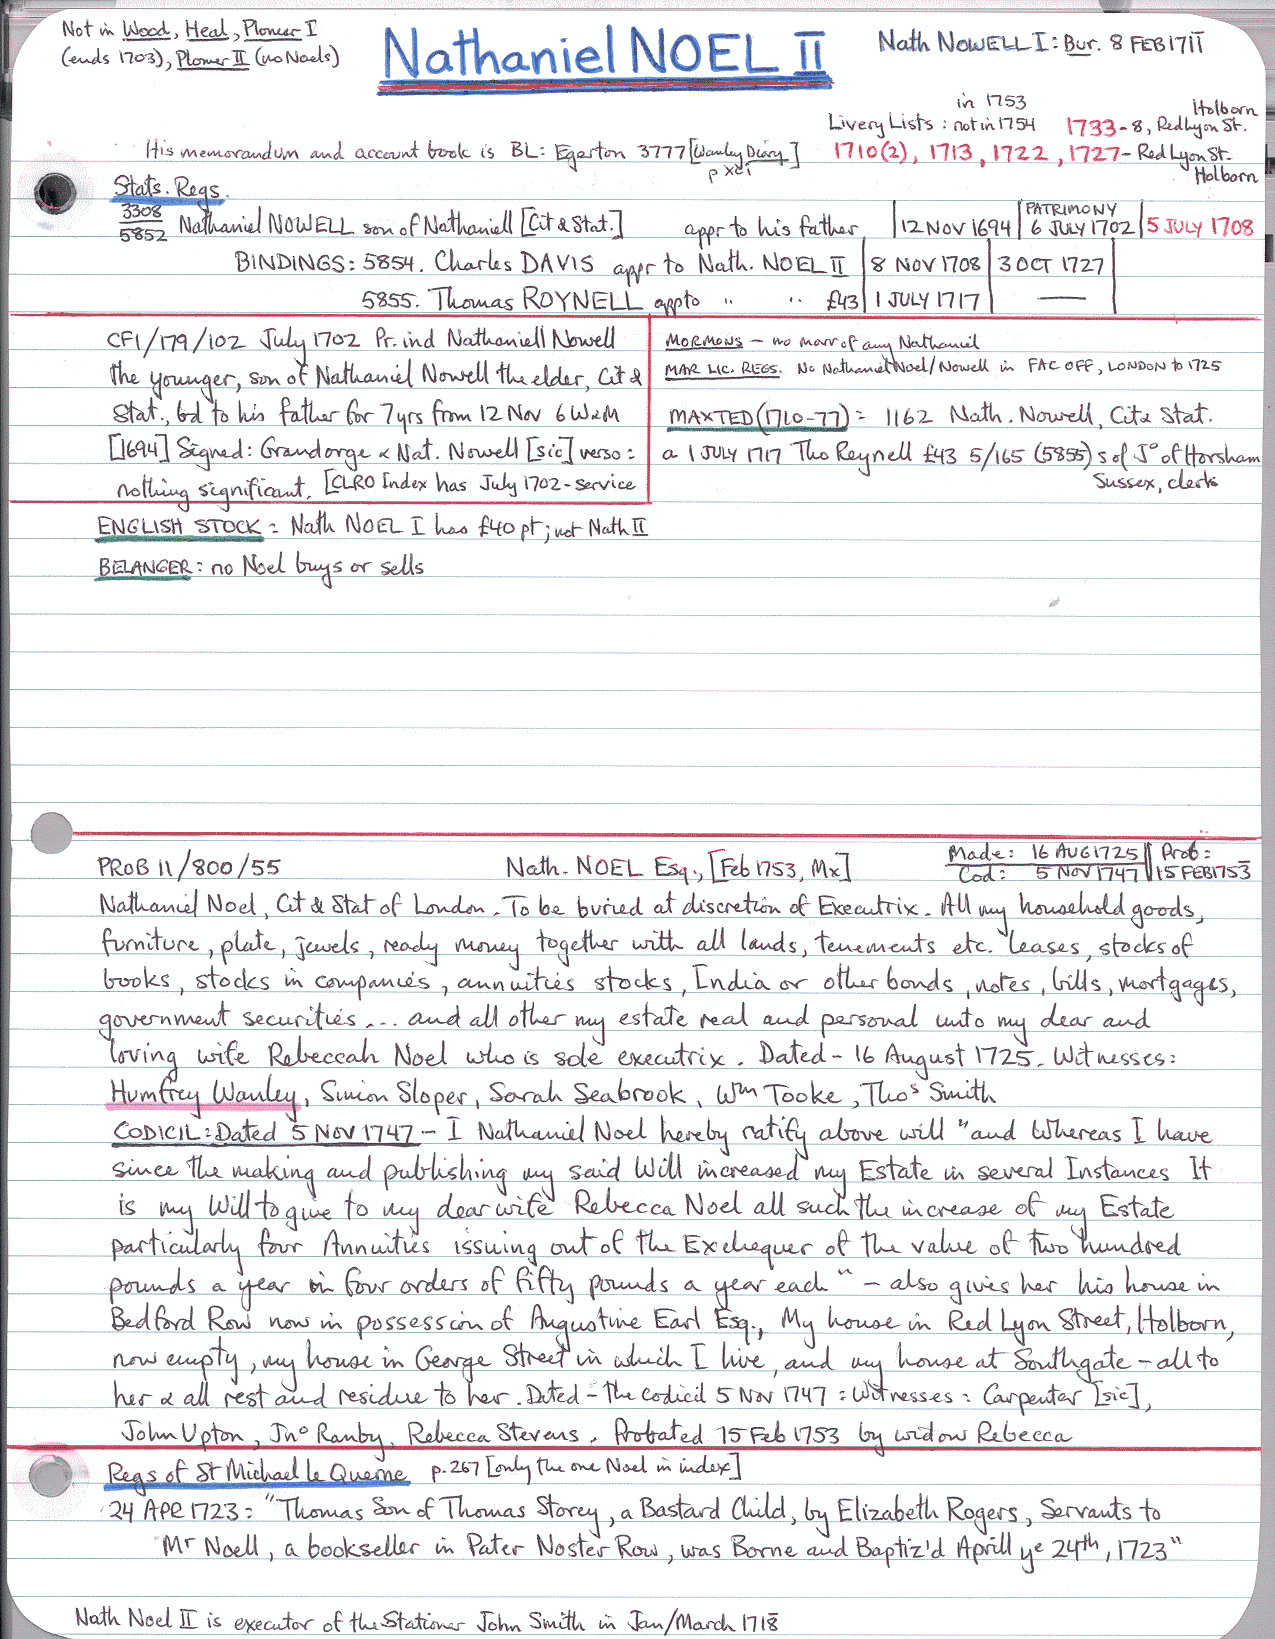 Not in Wood, Heal, Plomer I
(ends 1703), Plomer II (no Noels)
Nathaniel NOEL II
Nath NOWELL I: Bur. 8 FEB 1711
in 1753
Livery Lists: not in 1754 1733-8, Red Lyon St. Holborn
His memorandum and account book is BL: Egerton 3777 [Wanley Diary] p xci
1710(2), 1713, 1722, 1727- Red Lyon St. Holborn
Stats. Regs.
3308
5852 Nathaniel NOWELL son of Nathaniell [Cit & Stat.] appr to his father 12 NOV 1694 PATRIMONY 6 JULY 1702 5 JULY 1708
BINDINGS: 5854. Charles DAVIS appr to Nath. NOEL II 8 NOV 1708 3 OCT 1727
5855. Thomas ROYNELL app to " " £43 1 JULY 1717 —
CF1/179/102 July 1702 Pr. ind Nathaniell Nowell
the younger, son of Nathaniel Nowell the elder, Cit &
Stat., bd to his father for 7 yrs from 12 Nov 6 W&M
[1694] Signed: Grandorge & Nat. Nowell [sic] verso:
nothing significant. [CLRO Index has July 1702-service
MORMONS - no marr of any Nathaniel
MAR LIC. REGS. No Nathaniel Noel/Nowell in FAC OFF, LONDON to 1725
MAXTED (1710-77) = 1162 Nath. Nowell, Cit & Stat.
a 1 JULY 1717 Tho Reynell £43 5/165 (5855) s of Jo of Horsham
Sussex, clerk
ENGLISH STOCK: Nath NOEL I has £40 pt; not Nath II
BELANGER: no Noel buys or sells
PROB 11/800/55 Nath. NOEL Esq., [Feb 1753, Mx] Made: 16 AUG 1725 Prob:
Cod: 5 NOV 1747 15 FEB 1753
Nathaniel Noel, Cit & Stat of London. To be buried at discretion of Executrix. All my household goods,
furniture, plate, jewels, ready money together with all lands, tenements etc. leases, stocks of
books, stocks in companies, annuities stocks, India or other bonds, notes, bills, mortgages,
government securities... and all other my estate real and personal unto my dear and
loving wife Rebeccah Noel who is sole executrix. Dated - 16 August 1725. Witnesses:
Humfrey Wanley, Simon Sloper, Sarah Seabrook, Wm Tooke, Thos Smith
CODICIL: Dated 5 NOV 1747 - I Nathaniel Noel hereby ratify above will "and Whereas I have
since the making and publishing my said Will increased my Estate in several Instances It
is my Will to give to my dear wife Rebecca Noel all such the increase of my Estate
particularly four Annuities issuing out of the Exchequer of the value of two hundred
pounds a year in four orders of fifty pounds a year each" - also gives her his house in
Bedford Row now in possession of Augustine Earl Esq., My house in Red Lyon Street, Holborn,
now empty, my house in George Street in which I live, and my house at Southgate - all to
her & all rest and residue to her. Dated - the codicil 5 NOV 1747: Witnesses: Carpenter [sic],
John Upton, Jno Ranby, Rebecca Stevens. Probated 15 Feb 1753 by widow Rebecca
Regs of St Michael le Querne p. 267 [only the one Noel in index]
24 APR 1723: "Thomas Son of Thomas Storey, a Bastard Child, by Elizabeth Rogers, Servants to
Mr Noell, a bookseller in Pater Noster Row, was Borne and Baptiz'd Aprill ye 24th, 1723"
Nath Noel II is executor of the Stationer John Smith in Jan/March 1718